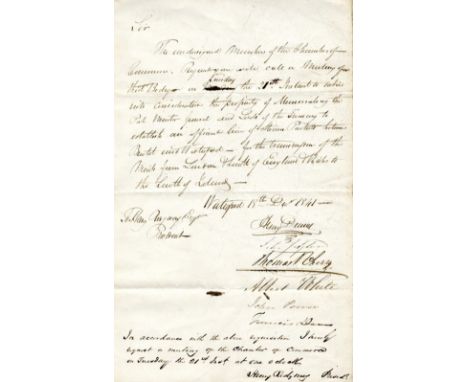 Sir
The undersigned Members of the Chamber of
Commerce. Request you will call a Meeting of
that Body on Tuesday the 21st Instant to take
into consideration the propriety of Memorialing the
Post Master general and Lords of the Treasury to
establish an efficient line of Steam Packets between
Bristol and Waterford for the transmission of the
Mails from London & South of England & Wales to
the South of Ireland
Waterford 18th Decr 1841
To Henry Ridgway Esqr
President
Henry Denny
Albert White
John Power
Francis
In accordance with the above requisition I hereby
request a meeting of the Chamber of Commerce
on Tuesday the 21st Inst at one oclock
Henry Ridgway Presdt